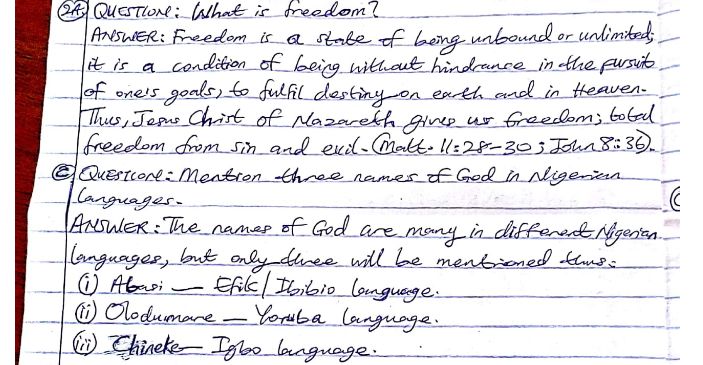 2A. QUESTION: What is freedom?
ANSWER: Freedom is a state of being unbound or unlimited;
it is a condition of being without hindrance in the pursuit
of one's goals, to fulfil destiny on earth and in Heaven.
Thus, Jesus Christ of Nazareth gives us freedom; total
freedom from sin and evil. (Matt. 11:28-30; John 8:36).
C QUESTION: Mention three names of God in Nigerian
languages.
ANSWER: The names of God are many in different Nigerian
languages, but only three will be mentioned thus:
(i) Abasi — Efik/Ibibio language.
(ii) Olodumare — Yoruba language.
(iii) Chineke — Igbo language.